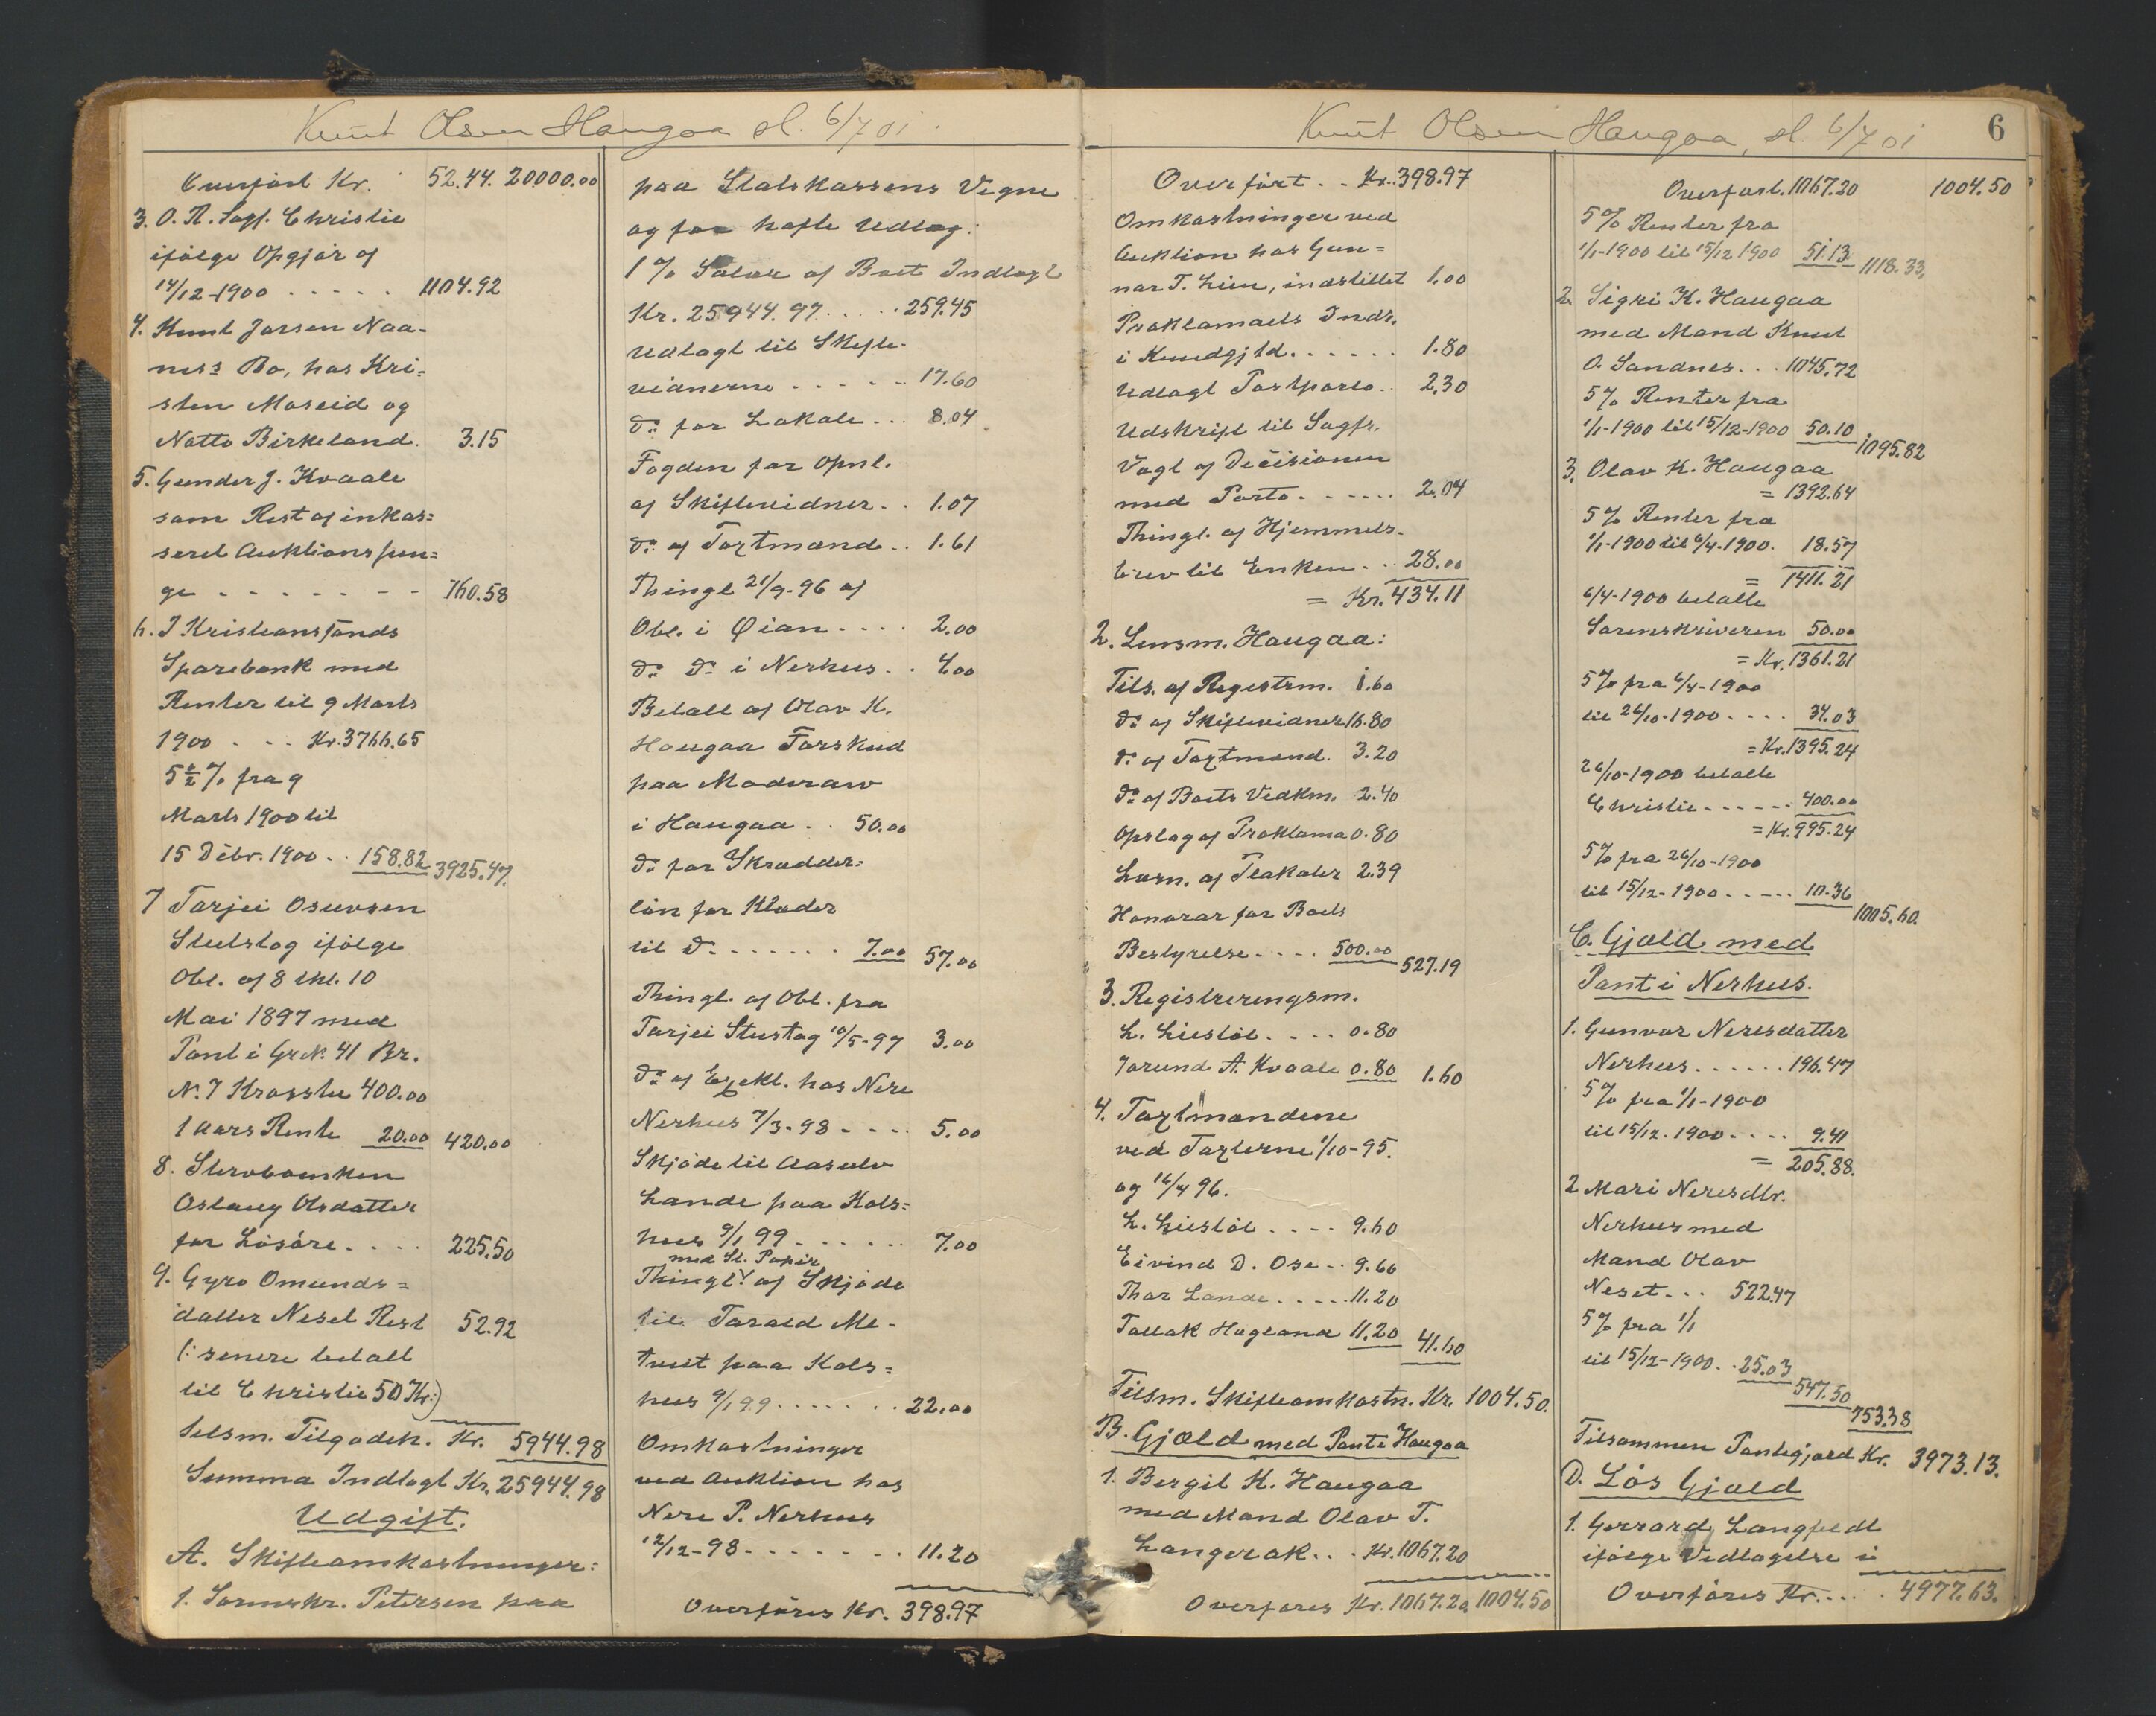 Knut Olsen Haugaa sl. 6/7 01.
Overført Kr. 52.44. 20000.00
3. O. R. Sagf. Christie
ifølge Opgjør af
14/12-1900 . . . . . 1104.92
4. Knut Jorsen Naa-
ness Bo, hos Kri-
sten Moseid og
Notto Birkeland. 3.15
5. Gunder J. Kvaale
som Rest af inkas=
seret Auktionspen=
ge - - - - - - - 760.58
6. I Kristianssands
Sparebank med
Renter til 9 Marts
1900 . . . Kr. 3766.65
5½% fra 9
Marts 1900 til
15 Debr. 1900 . . 158.82 3925.47.
7 Tarjei Osuvsen
Stutstog ifølge
Obl. af 8 thl. 10
Mai 1897 med
Pant i Gr.N. 41 Br.
N. 7 Krosslu 400.00
1 Aars Rente 20.00 420.00
8. Stervboenken
Aslaug Olsdatter
for Løsøre. . . . 225.50
9. Gyro Omunds=
datter Neset Rest 52.92
(: senere betalt
til Christie 50 Kr:)
tilsm. Tilgodeh. Kr. 5944.98
Summa Indtægt Kr. 25944.98
Udgift.
A. Skifteomkostninger:
1. Sorenskr. Petersen paa
paa Statskassens Vegne
og for hafte Udlæg:
1% Salær af Boets Indtægt
Kr. 25944.97 . . . . . 259.45
Udlagt til Skifte-
vidnerne - - - - - 17.60
Do for Lokale . . . 8.04
Fogden for Opnl.
af Skiftevidner . . 1.07
Do af Taxtmænd . . 1.61
Thingl 21/9-96 af
Obl. i Øian . . . . 2.00
Do Do i Nerhus . . 4.00
Betalt af Olav K.
Haugaa Forskud
paa Moderarv
i Haugaa . . 50.00
Do for Skrædder-
løn for Klæder
til Do . . . . . . 7.00 57.00
Thingl. af Obl. fra
Tarjei Stustog 10/5-97 3.00
Do af Exekl. hos Nere
Nerhus 7/3-98 - - - - 5.00
Skjøde til Aasulv
Lande paa Kols=
hus 9/1 99 . . . . . . 7.00
med St. Papir
Thingl. af Skjøde
til Tarald Me-
tveit paa Kols=
hus 9/1 99 . . . . . . . 22.00
Omkostninger
ved Auktion hos
Nere P. Nerhus
12/12-98 - - - - - - - 11.20
Overføres Kr. 398.97
Knut Olsen Haugaa, sl 6/7 01
6
Overført . . Kr. 398.97
Omkostninger ved
Auktion hos Gun=
nar T. Lien, indstillet 1.00
Proklamaets Indr.
i Kundgjtd. . . . . . 1.80
Udlagt Postporto . . 2.30
Udskrift til Sagfr.
Vogt af Decisionen
med Porto . . . . . . 2.04
Thingl. af Hjemmels-
brev til Enken . . . 28.00
= Kr. 434.11
2. Lensm. Haugaa:
Tils. af Registrm. 1.60
Do af Skiftevidner 16.80
Do af Taxtmænd. 3.20
Do af Boets Vedkm. 2.40
Opslag af Proklama 0.80
Læsn. af Plakater 2.39
Honorar for Boets
Bestyrelse . . . . 500.00 527.19
3. Registreringsm.
L. Liestøl . . . . 0.80
Jorund A. Kvaale 0.80 1.60
4. Taxtmændene
ved Taxterne 1/10-95.
og 16/4 96.
L. Liestøl . . . . 9.60
Eivind D. Ose . . 9.60
Thor Lande . . . . . 11.20
Tallak Hageland 11.20 41.60
Tilsm. Skifteomkostn. Kr. 1004.50.
B. Gjæld med Pant i Haugaa
1. Bergit K. Haugaa
med Mand Olav T.
Langerak . . . Kr. 1067.20
Overføres Kr. 1067.20 1004.50
Overført. 1067.20 1004.50
5% Renter fra
1/1-1900 til 15/12 1900 51.13 1118.33,
2. Sigri K. Haugaa
med Mand Knut
O. Sandnes . . . 1045.72
5% Renter fra
1/1-1900 til 15/12-1900 50.10 1095.82
3. Olav K. Haugaa
= 1392.64
5% Renter fra
1/1-1900 til 6/4-1900. 18.57
= 1411.21
6/4-1900 betalte
Sorenskriveren 50.00
= Kr. 1361.21
5% fra 6/4-1900
til 26/10-1900 . . . . 34.03
= Kr. 1395.24
26/10-1900 betalte
Christie - - - - - - 400.00
= Kr. 995.24
5% fra 26/10-1900
til 15/12-1900 . . . . . 10.36 1005.60.
C. Gjæld med
Pant i Nerhus.
1. Gunvor Neresdatter
Nerhus . . . . . . 196.47
5% fra 1/1-1900
til 15/12-1900 . . . . 9.41
= 205.88.
2 Mari Neresdtr.
Nerhus med
Mand Olav
Neset . . . 522.47
5% fra 1/1
til 15/12-1900 . . 25.03 547.50
753.38
Tilsammen Pantegjæld Kr. 3973.13.
D. Løs Gjæld
1. Gerrard Langfeldt
ifølge Vedtagelse i
Overføres Kr. . . . . 4977.63.